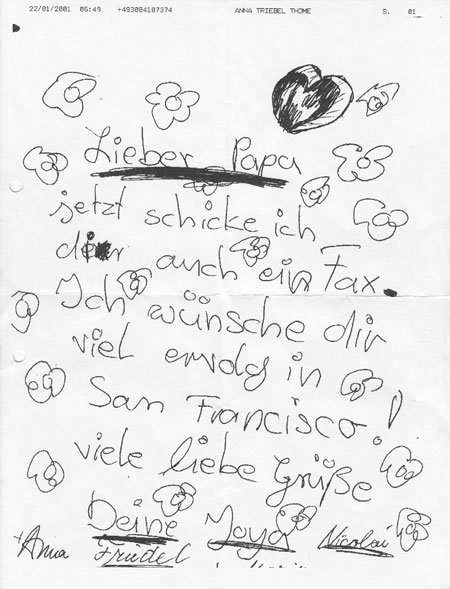 22/01/2001 06:49 +493084107374 ANNA TRIEBEL THOME S. 01
Lieber Papa
jetzt schicke ich
dir auch ein Fax.
Ich wünsche dir
viel ervolg in
San Francisco!
viele liebe Grüße
Deine Joya Nicolai
+Anna Friedel